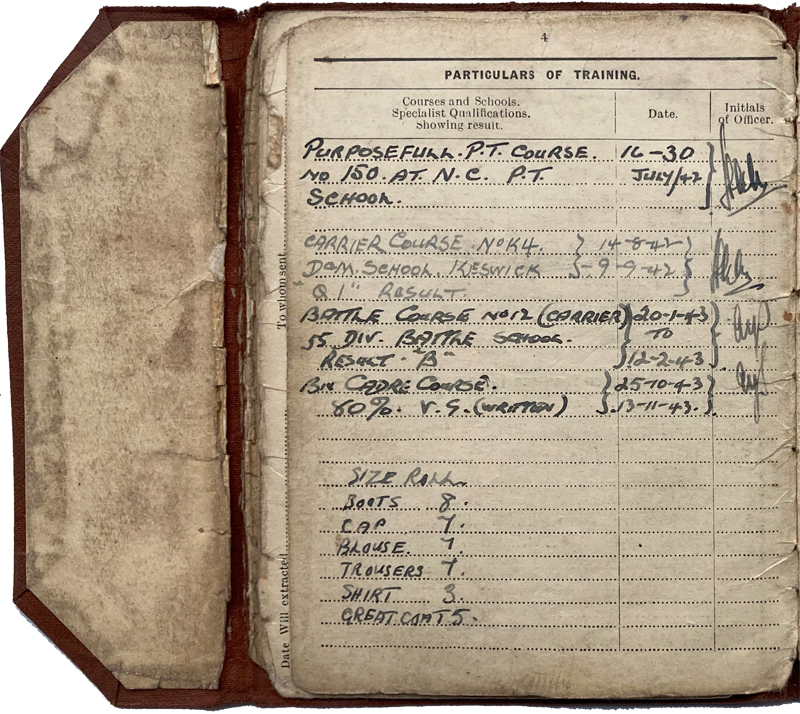 4
PARTICULARS OF TRAINING.
Courses and Schools. Specialist Qualifications. Showing result.
Date.
Initials of Officer.
PURPOSEFULL. P.T. COURSE. 16-30
No 150. AT N.C. P.T. JULY/42
SCHOOL.
CARRIER COURSE. No K4. 14-8-42
D&M. SCHOOL. KESWICK -9-9-42
"Q1" RESULT.
BATTLE COURSE No 12 (CARRIER) 20-1-43
55 DIV. BATTLE SCHOOL. TO
RESULT "B" 12-2-43
BN CADRE COURSE. 25-10-43
80%. V.G. (WRITTEN) 13-11-43.
SIZE ROLL.
BOOTS 8.
CAP 7.
BLOUSE. 7.
TROUSERS 7.
SHIRT 3.
GREATCOAT 5.
To whom sent
Date Will extracted